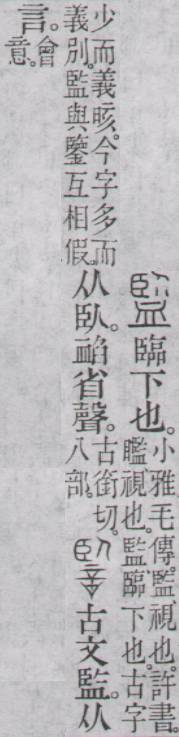 監臨下也。小雅毛傳。監視也。許書。
𥌈視也。監臨下也。古字
少而義晐。今字多而
義別。監與鑒互相假。
从臥。䘓省聲。古銜切。
八部。
古文監。从
言。會
意。